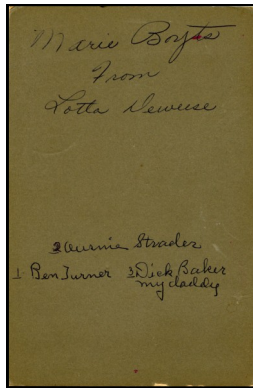 Marie Boyts
From
Lotta Deweese
2 Strader
1 Ben Turner 3 Dick Baker
my daddy